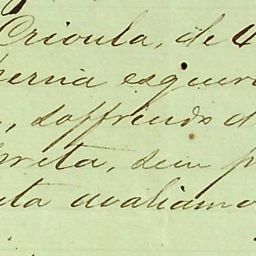 Crioula, de 4
perna esquer
, soffrendo d
preta, sem p
ita avaliamo